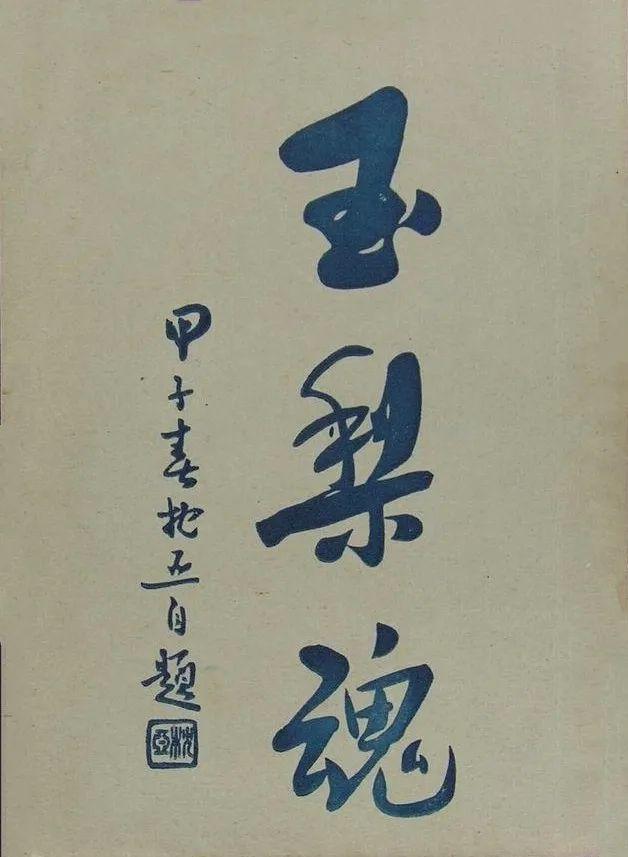 玉梨魂
甲子春枕亞自題
枕亞